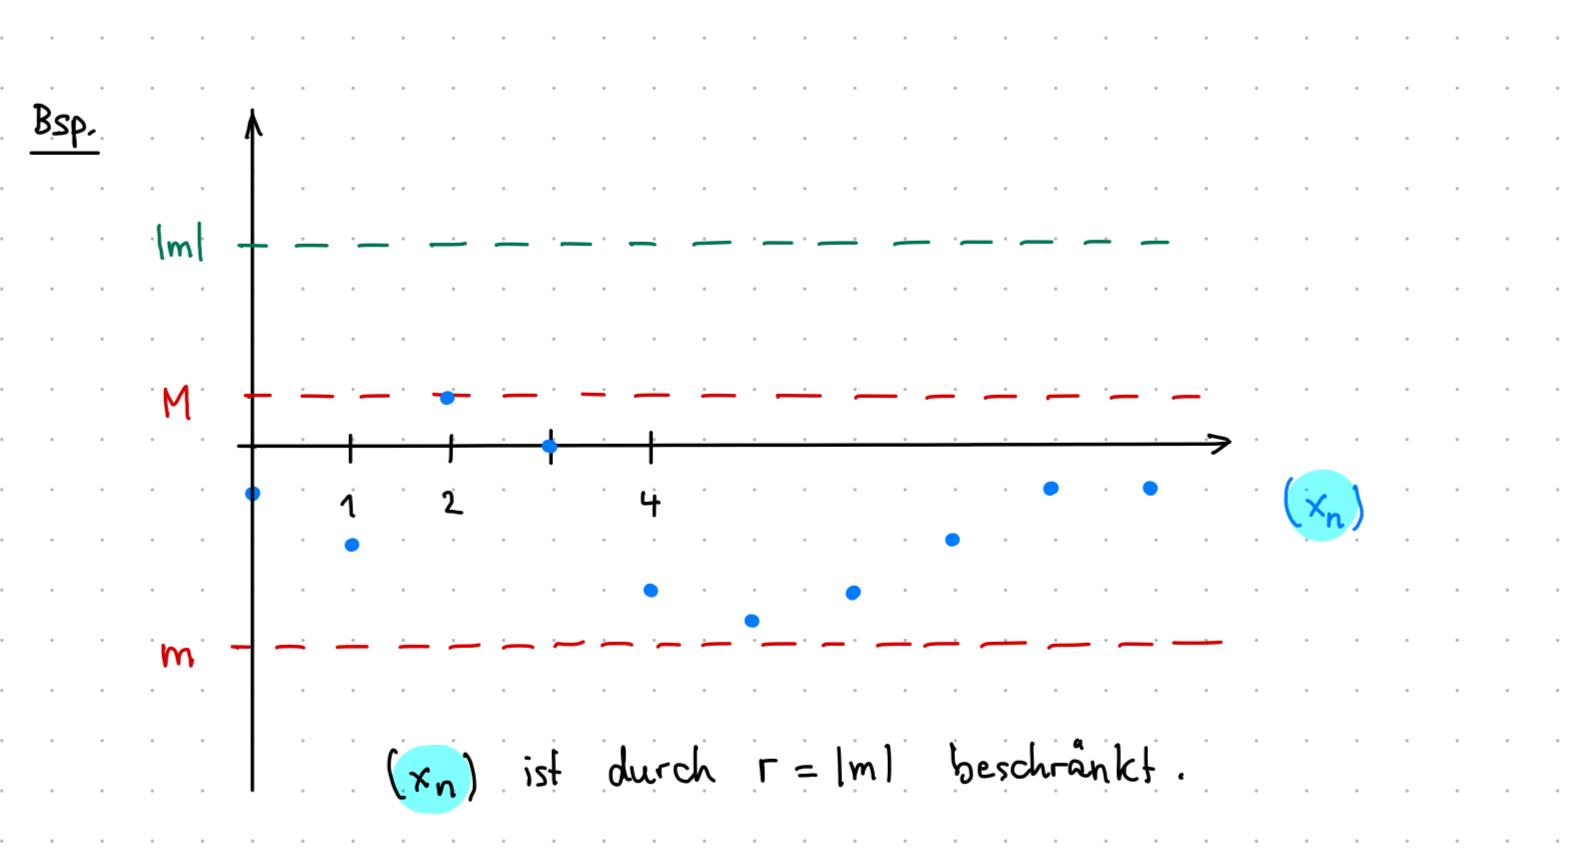 Bsp.
|m|
M
1 2 4
(xₙ)
m
(xₙ) ist durch r = |m| beschränkt.